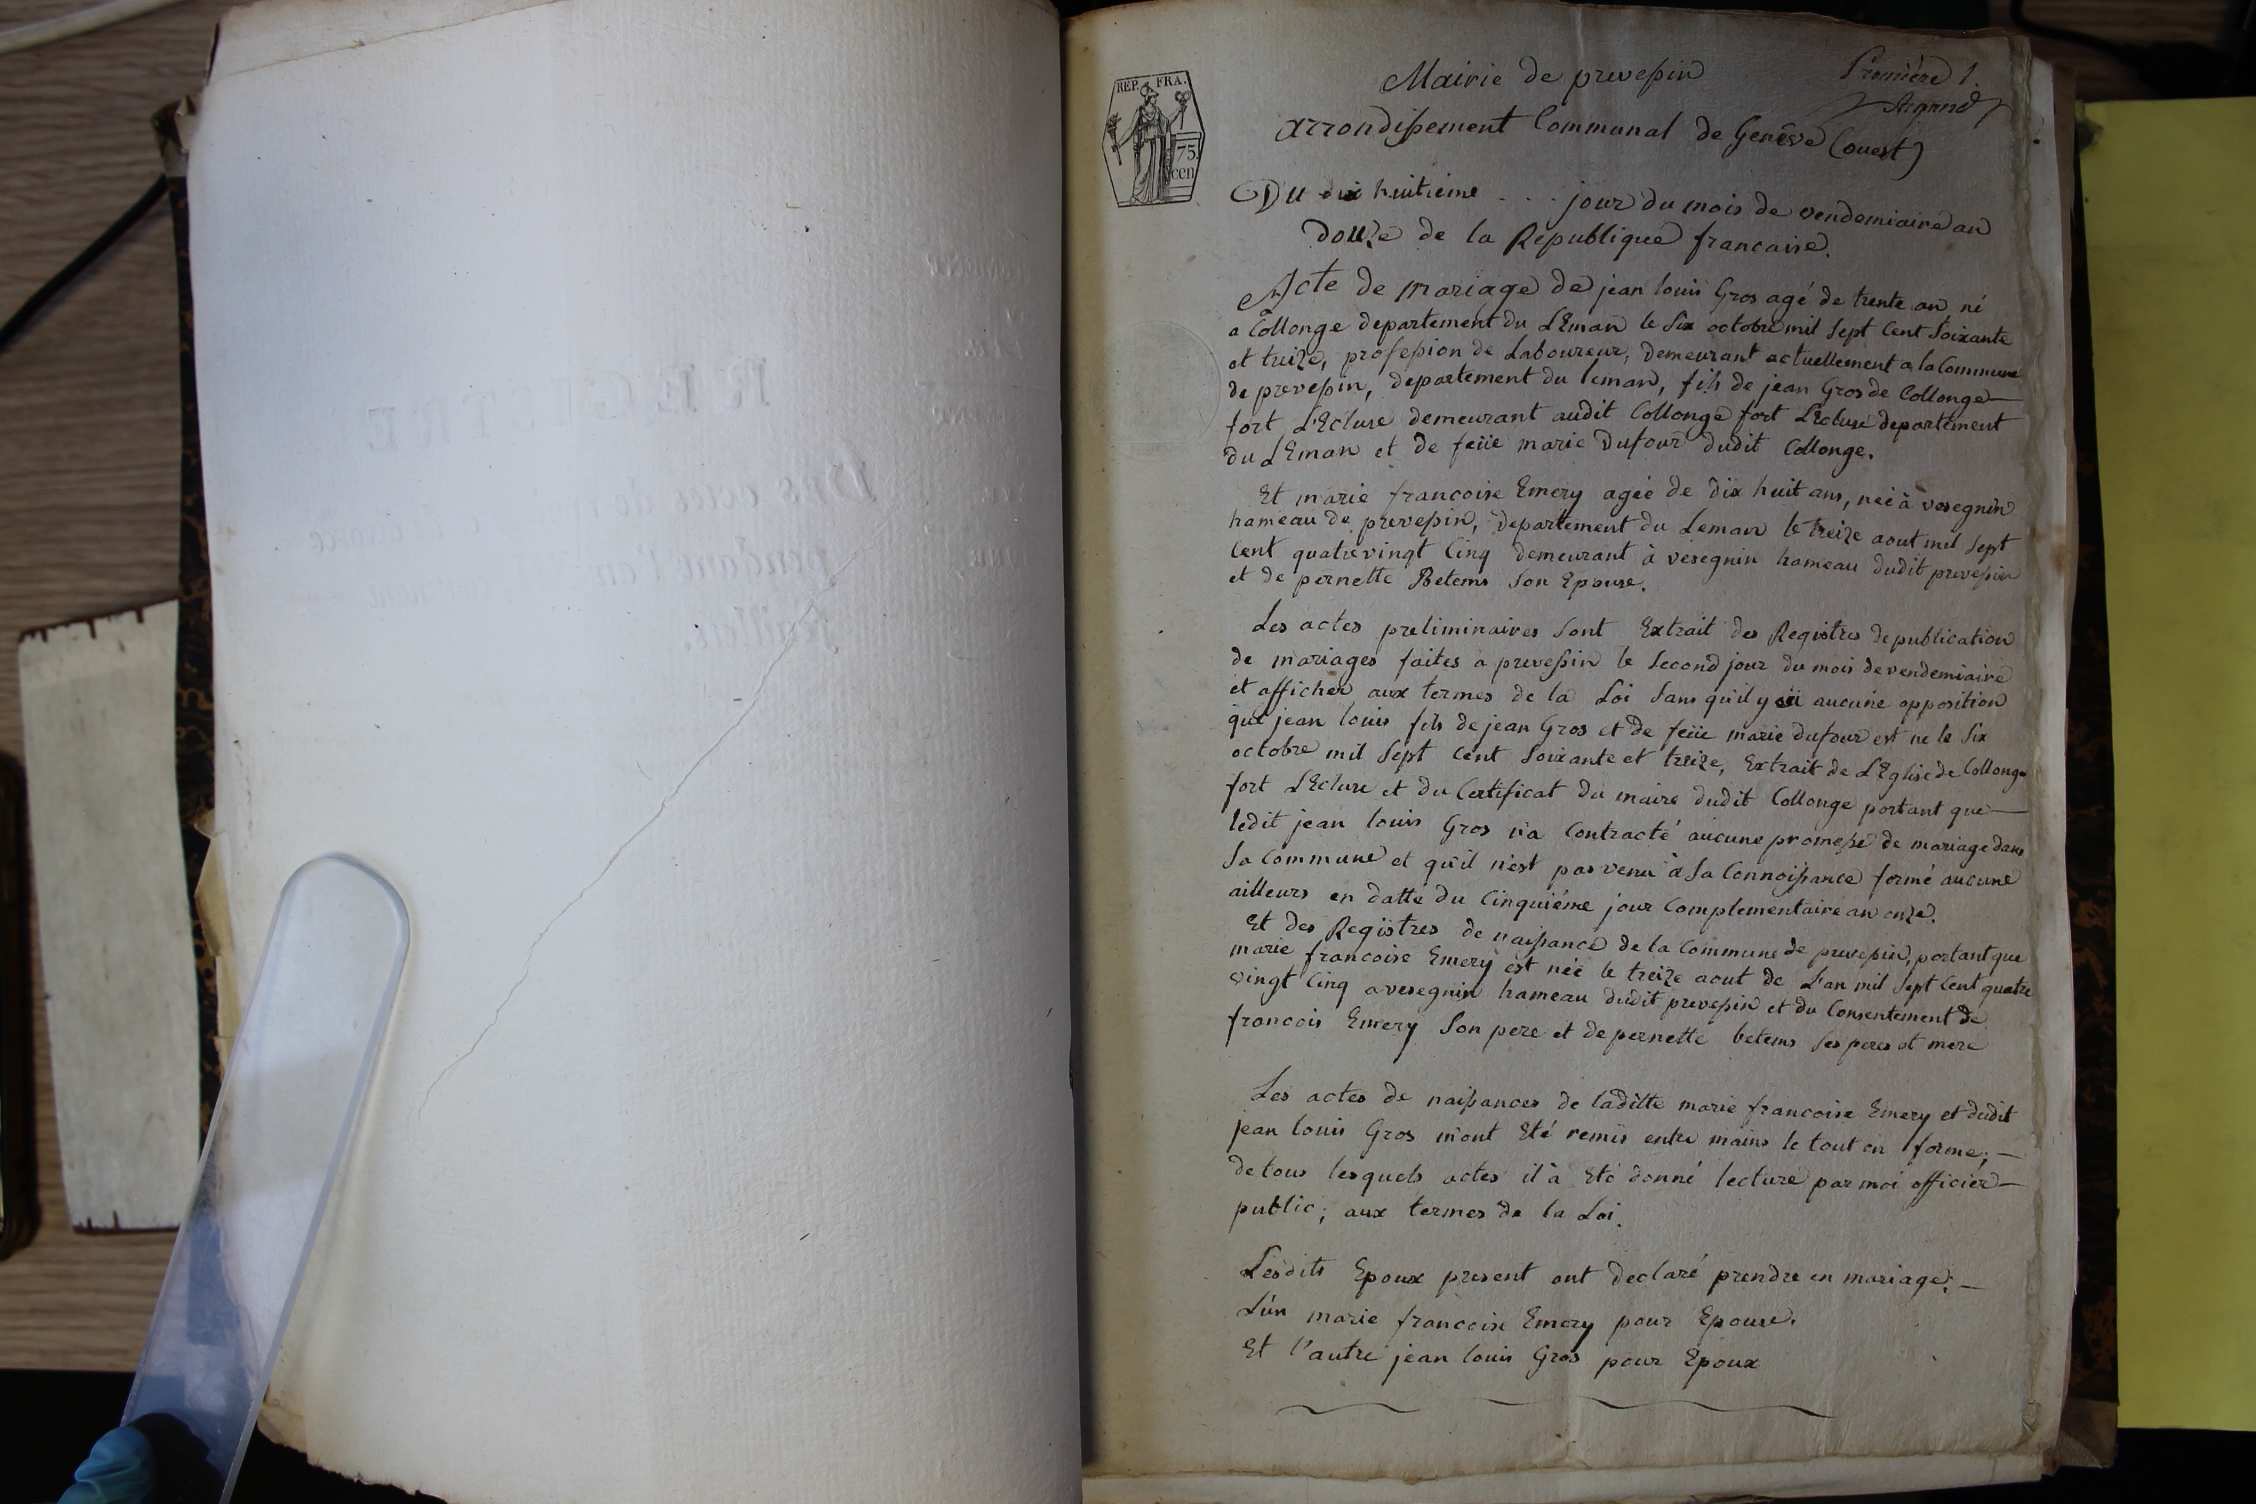 REP. FRA.
75
cen
Mairie de prevessin
Premiere 1.
arrondissement Communal de Genêve (ouest)
Du dix huitieme . . . jour du mois de vendemiaire an
douze de la Republique francaise.
Acte de mariage de jean louis Gros agé de trente an, né
a Collonge departement du LEman le Six octobre mil Sept Cent Soixante
et treize, profession de Laboureur, demeurant actuellement a la Commune
de prevessin, departement du leman, fils de jean Gros de Collonge
fort L'Ecluse demeurant audit Collonge fort L'Ecluse departement
du LEman et de feüe marie Dufour dudit Collonge.
Et marie francoise Emery agée de dix huit ans, neé à vesegnin
hameau de prevessin, departement du Leman le treize aout mil Sept
Cent quatrevingt Cinq demeurant à vesegnin hameau dudit prevessin
et de pernette Betems Son Epouse.
Les actes preliminaires Sont Extrait des Registres de publication
de mariages faites a prevessin le Second jour du mois de vendemiaire
et afficher aux termes de la Loi Sans qu'il y eü aucune opposition
que jean louis fils de jean Gros et de feüe marie dufour est ne le Six
octobre mil Sept Cent Soixante et treize, Extrait de L'Eglise de Collonge
fort L'Ecluse et du Certificat du maire dudit Collonge portant que
ledit jean louis Gros n'a Contracté aucune promesse de mariage dans
Sa Commune et qu'il n'est pas venu à Sa Connoissance formé aucune
ailleurs en datte du Cinquiéme jour Complementaire an onze.
Et des Registres de naissance de la Commune de prevessin, portant que
marie francoise Emery est née le treize aout de L'an mil Sept Cent quatre
vingt Cinq a vesegnin hameau dudit prevessin et du Consentement de
francois Emery Son pere et de pernette betems Ses peres et mere
Les actes de naissances de laditte marie francoise Emery et dudit
jean louis Gros m'ont Eté remis entre mains le tout en forme;
de tous lesquels actes il à Eté donné lecture par moi officier
public; aux termes de la Loi.
Lesdits Epoux present ont declaré prendre en mariage:
L'un marie francoise Emery pour Epouse.
Et l'autre jean louis Gros pour Epoux